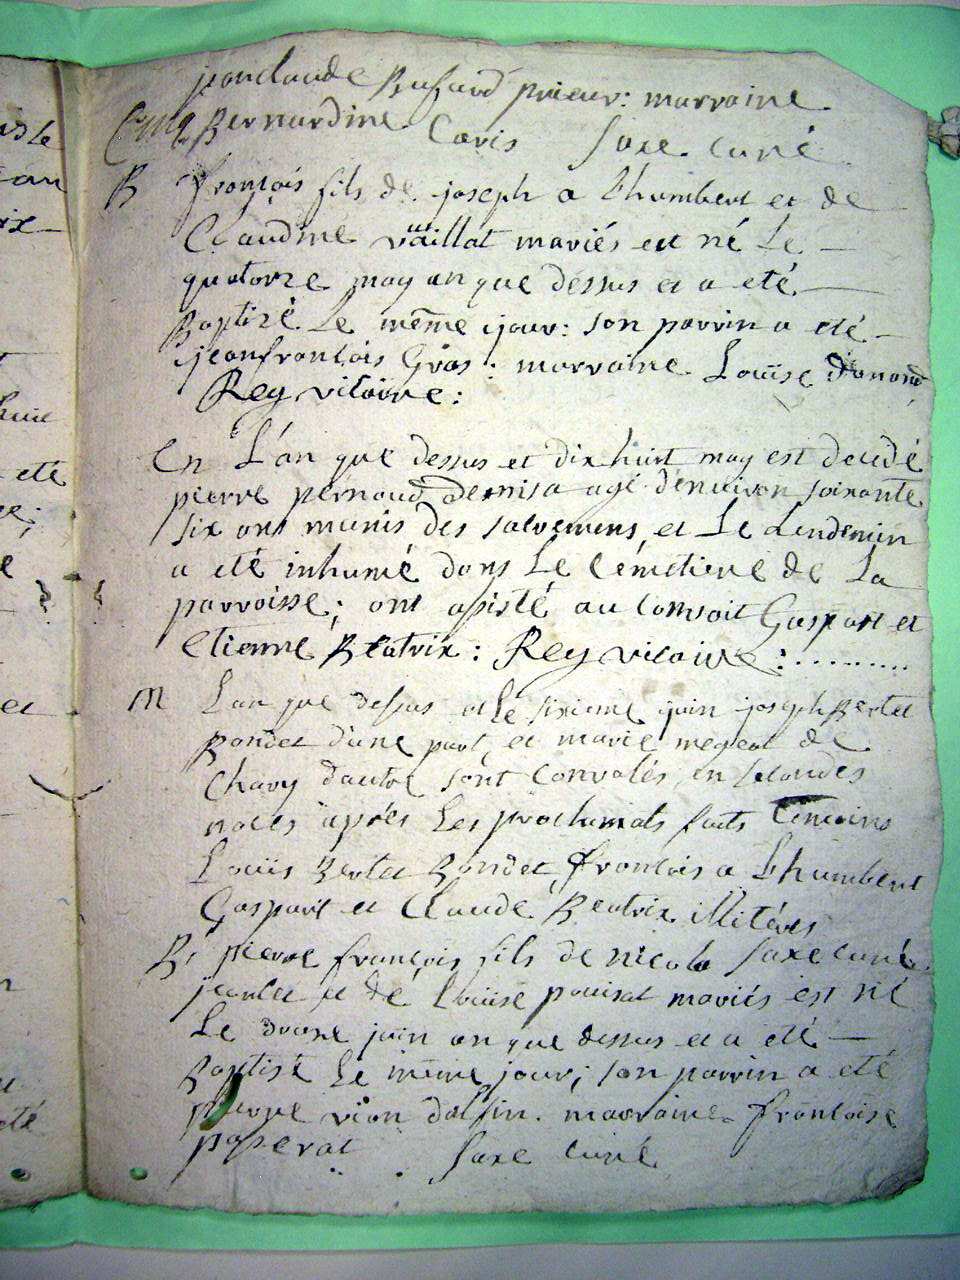 jean claude Bufard prieur: marraine
Bernardine Caris Saxe curé
B françois fils de joseph a Lhumbert et de
Claudine vuaillat mariés est né Le
quatorze may an que dessus et a eté
Baptizé Le même jour: son parrin a eté
jeanfrançois Gros: marraine Louïse
Rey vicaire:
En L'an que dessus et dix huit may est decedé
pierre pernoud agé d'enuiron soixante
six ans munis des sacremens et Le Lendemin
a eté inhumé dans Le Cémetiere de La
parroisse; ont asisté au Conuoit Gaspart et
etienne Beatrix: Rey vicaire:.........
M L'an que dessus et Le sixieme juin joseph Bertet
Bondet d'une part et marie megeat de
Chavy d'autre sont Convolés en secondes
noces après Les proclamats faits temoins
Louïs Bertet Bondet, françois a Lhumbert
Gaspart et Claude Beatrix illiterés
B; pierre françois fils de nicolo Saxe curé
jeantet et de Louïse pauisat mariés est né
Le douze juin an que dessus et a eté
Baptisé Le même jour; son parrin a eté
pierre vion dalfin. marraine françoise
paserat Saxe curé